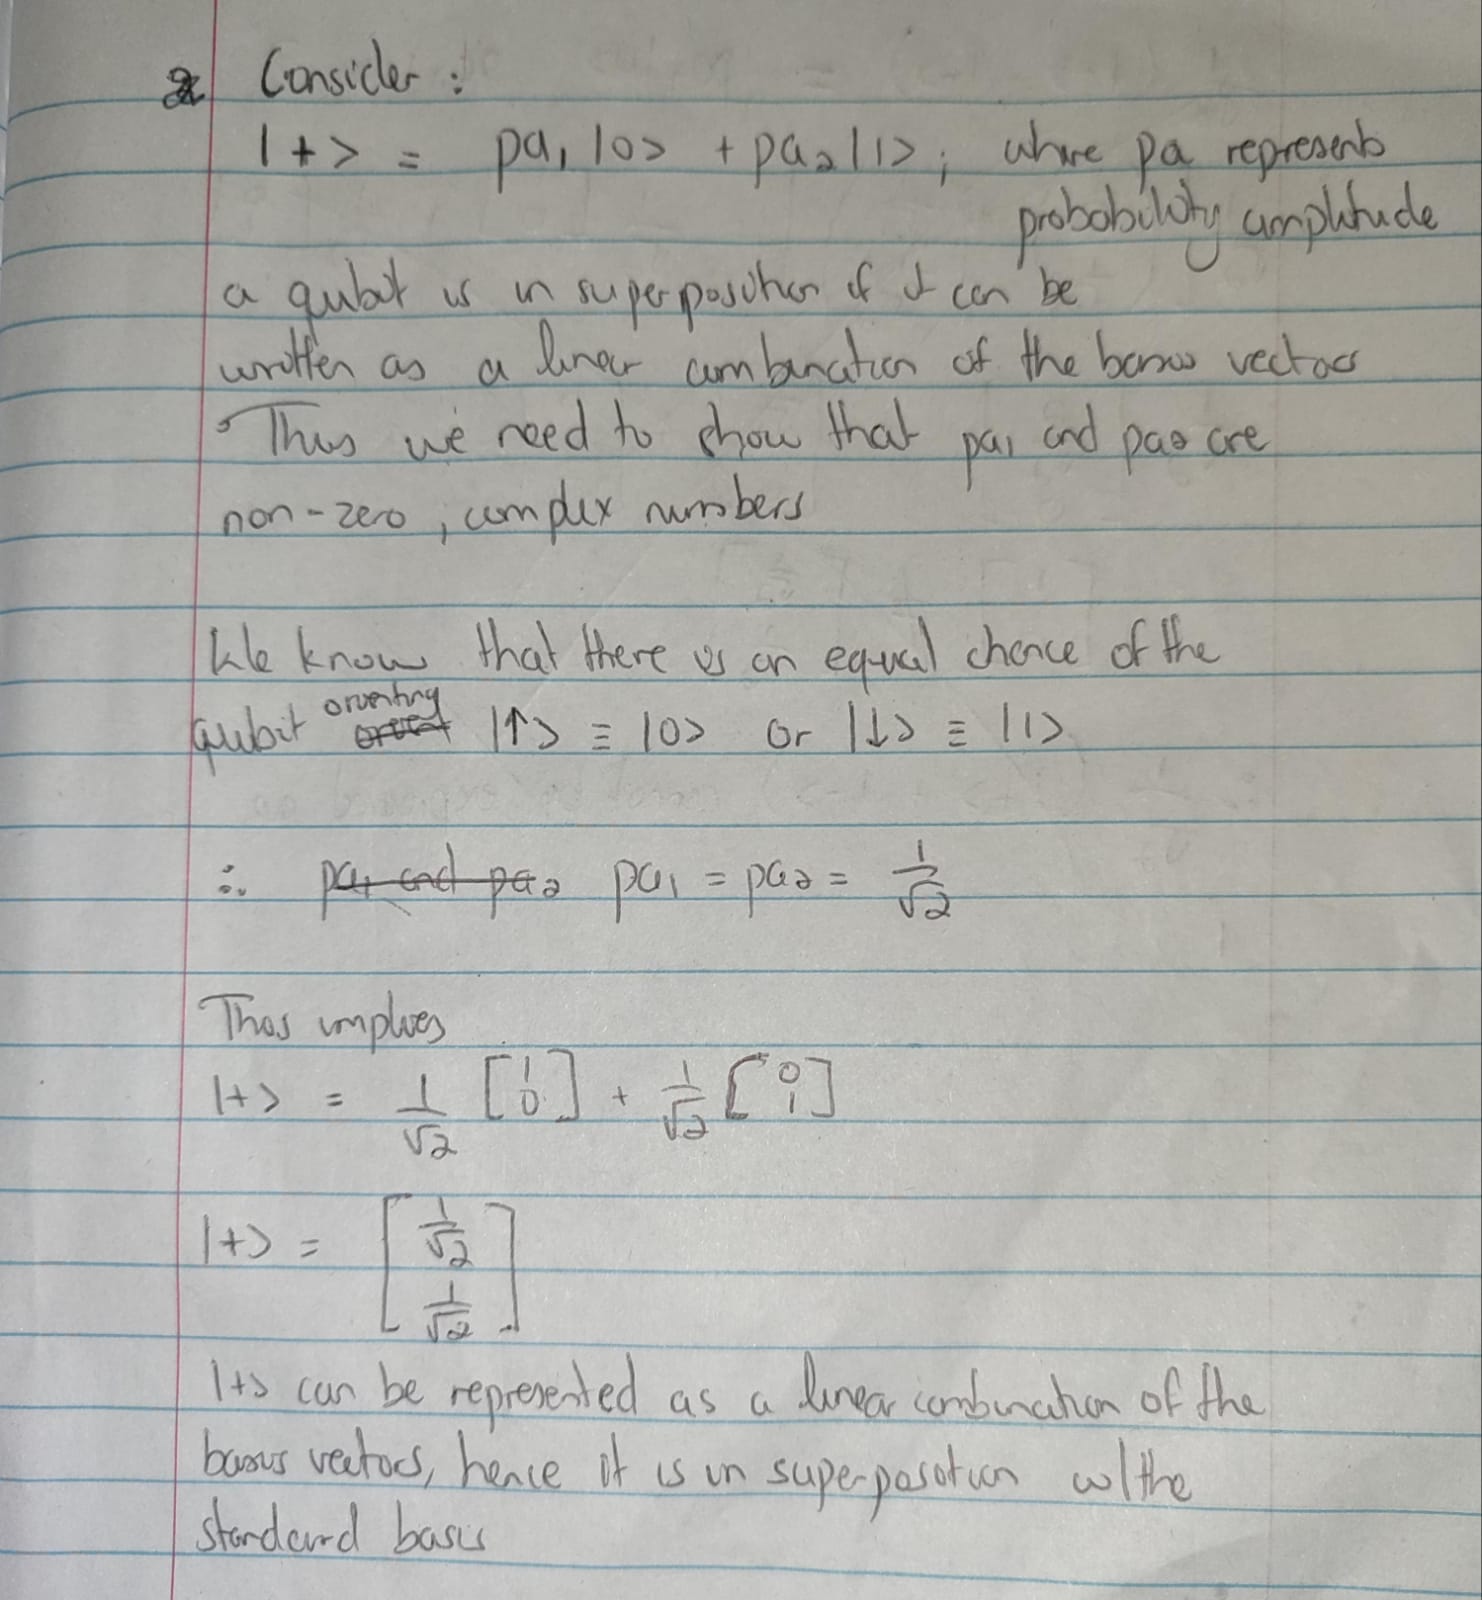 2 Consider :
|+> = pa₁ |0> + pa₂ |1> ; where pa represents
probability amplitude
a qubit is in superposition if it can be
written as a linear combination of the basis vectors
Thus we need to show that pa₁ and pa₂ are
non-zero, complex numbers
We know that there is an equal chance of the
qubit orienting |↑> ≡ |0> or |↓> ≡ |1>
∴ pa₁ and pa₂ pa₁ = pa₂ = 1/√2
This implies
|+> = 1/√2 [1 0] + 1/√2 [0 1]
|+> = [1/√2 1/√2]
|+> can be represented as a linear combination of the
basis vectors, hence it is in superposition w/the
standard basis